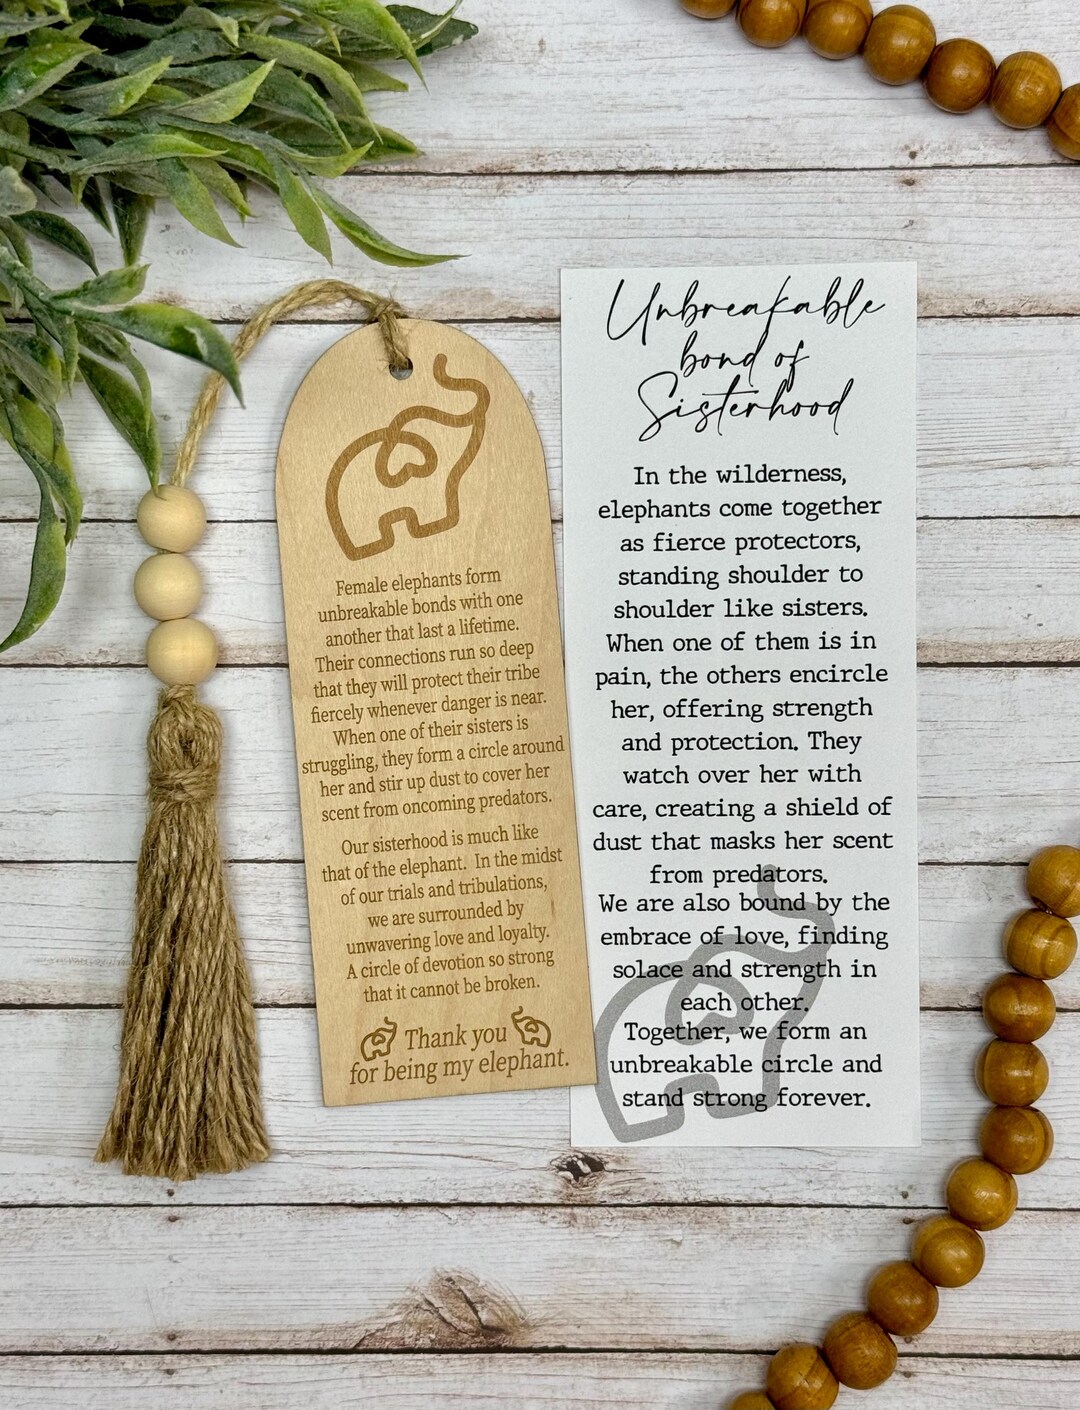 Female elephants form
unbreakable bonds with one
another that last a lifetime.
Their connections run so deep
that they will protect their tribe
fiercely whenever danger is near.
When one of their sisters is
struggling, they form a circle around
her and stir up dust to cover her
scent from oncoming predators.
Our sisterhood is much like
that of the elephant. In the midst
of our trials and tribulations,
we are surrounded by
unwavering love and loyalty.
A circle of devotion so strong
that it cannot be broken.
Thank you
for being my elephant.
Unbreakable
bond of
Sisterhood
In the wilderness,
elephants come together
as fierce protectors,
standing shoulder to
shoulder like sisters.
When one of them is in
pain, the others encircle
her, offering strength
and protection. They
watch over her with
care, creating a shield of
dust that masks her scent
from predators.
We are also bound by the
embrace of love, finding
solace and strength in
each other.
Together, we form an
unbreakable circle and
stand strong forever.